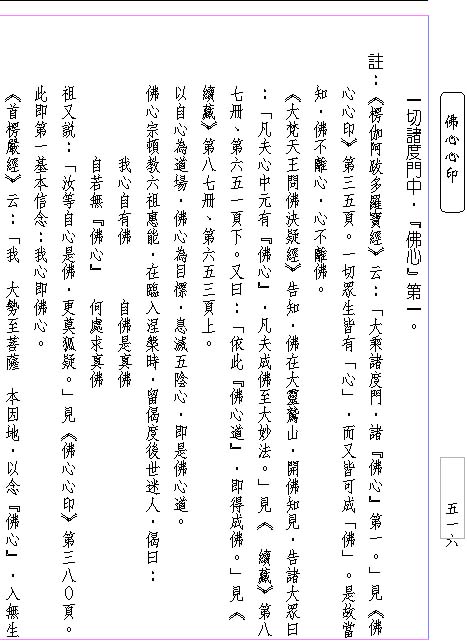 佛心心印
五一六
一切諸度門中，『佛心』第一。
註：《楞伽阿跋多羅寶經》云：「大乘諸度門，諸『佛心』第一。」見《佛
心心印》第三五頁。一切眾生皆有「心」，而又皆可成「佛」。是故當
知，佛不離心，心不離佛。
《大梵天王問佛決疑經》告知，佛在大靈鷲山，開佛知見，告諸大眾曰
：「凡夫心中元有『佛心』，凡夫成佛至大妙法。」見《 續藏》第八
七冊、第六五一頁下。又曰：「依此『佛心道』，即得成佛。」見《
續藏》第八七冊、第六五三頁上。
以自心為道場，佛心為目標，息滅五陰心，即是佛心道。
佛心宗頓教六祖惠能，在臨入涅槃時，留偈度後世迷人，偈曰：
我心自有佛　　自佛是真佛
自若無『佛心』　　何處求真佛
祖又說：「汝等自心是佛，更莫狐疑。」見《佛心心印》第三八０頁。
此即第一基本信念：我心即佛心。
《首楞嚴經》云：「我　大勢至菩薩　本因地，以念『佛心』，入無生